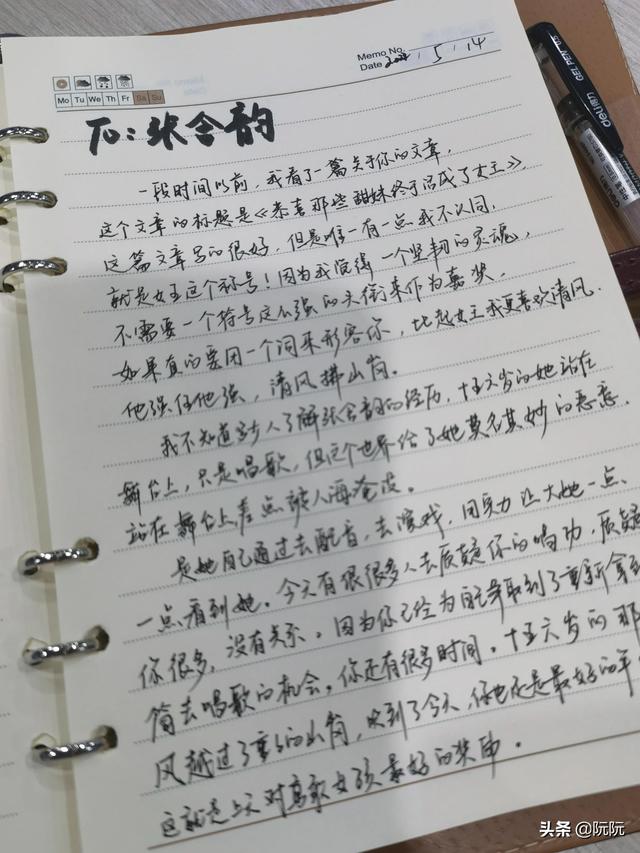 Memo No.
Date 2021 / 5 / 14
Mo Tu We Th Fr Sa Su
To:张含韵
一段时间以前,我看了一篇关于你的文章,
这个文章的标题是《恭喜那些甜妹终于活成了女王》,
这篇文章写的很好,但是唯一有一点我不认同,
就是女王这个称号!因为我觉得一个坚韧的灵魂,
不需要一个符号这么强的头衔来作为嘉奖,
如果真的要用一个词来形容你,比起女王我更喜欢清风.
他强任他强,清风拂山岗。
我不知道多少人了解张含韵的经历,十五六岁的她站在
舞台上,只是唱歌,但这个世界给了她莫名其妙的恶意.
站在舞台上差点被人海淹没。
是她自己通过去配音,去演戏,用实力让大她一点、
一点看到她。今天有很很多人去质疑你的唱功,质疑
你很多,没有关系。因为你已经为自己争取到了重新拿
筒去唱歌的机会,你还有很多时间。十五六岁的那
风越过了重重的山岗,吹到了今天,你也还是最好的年
这就是上天对唱歌女孩最好的奖励。
deli得力
GEL PEN
头条 @阮阮